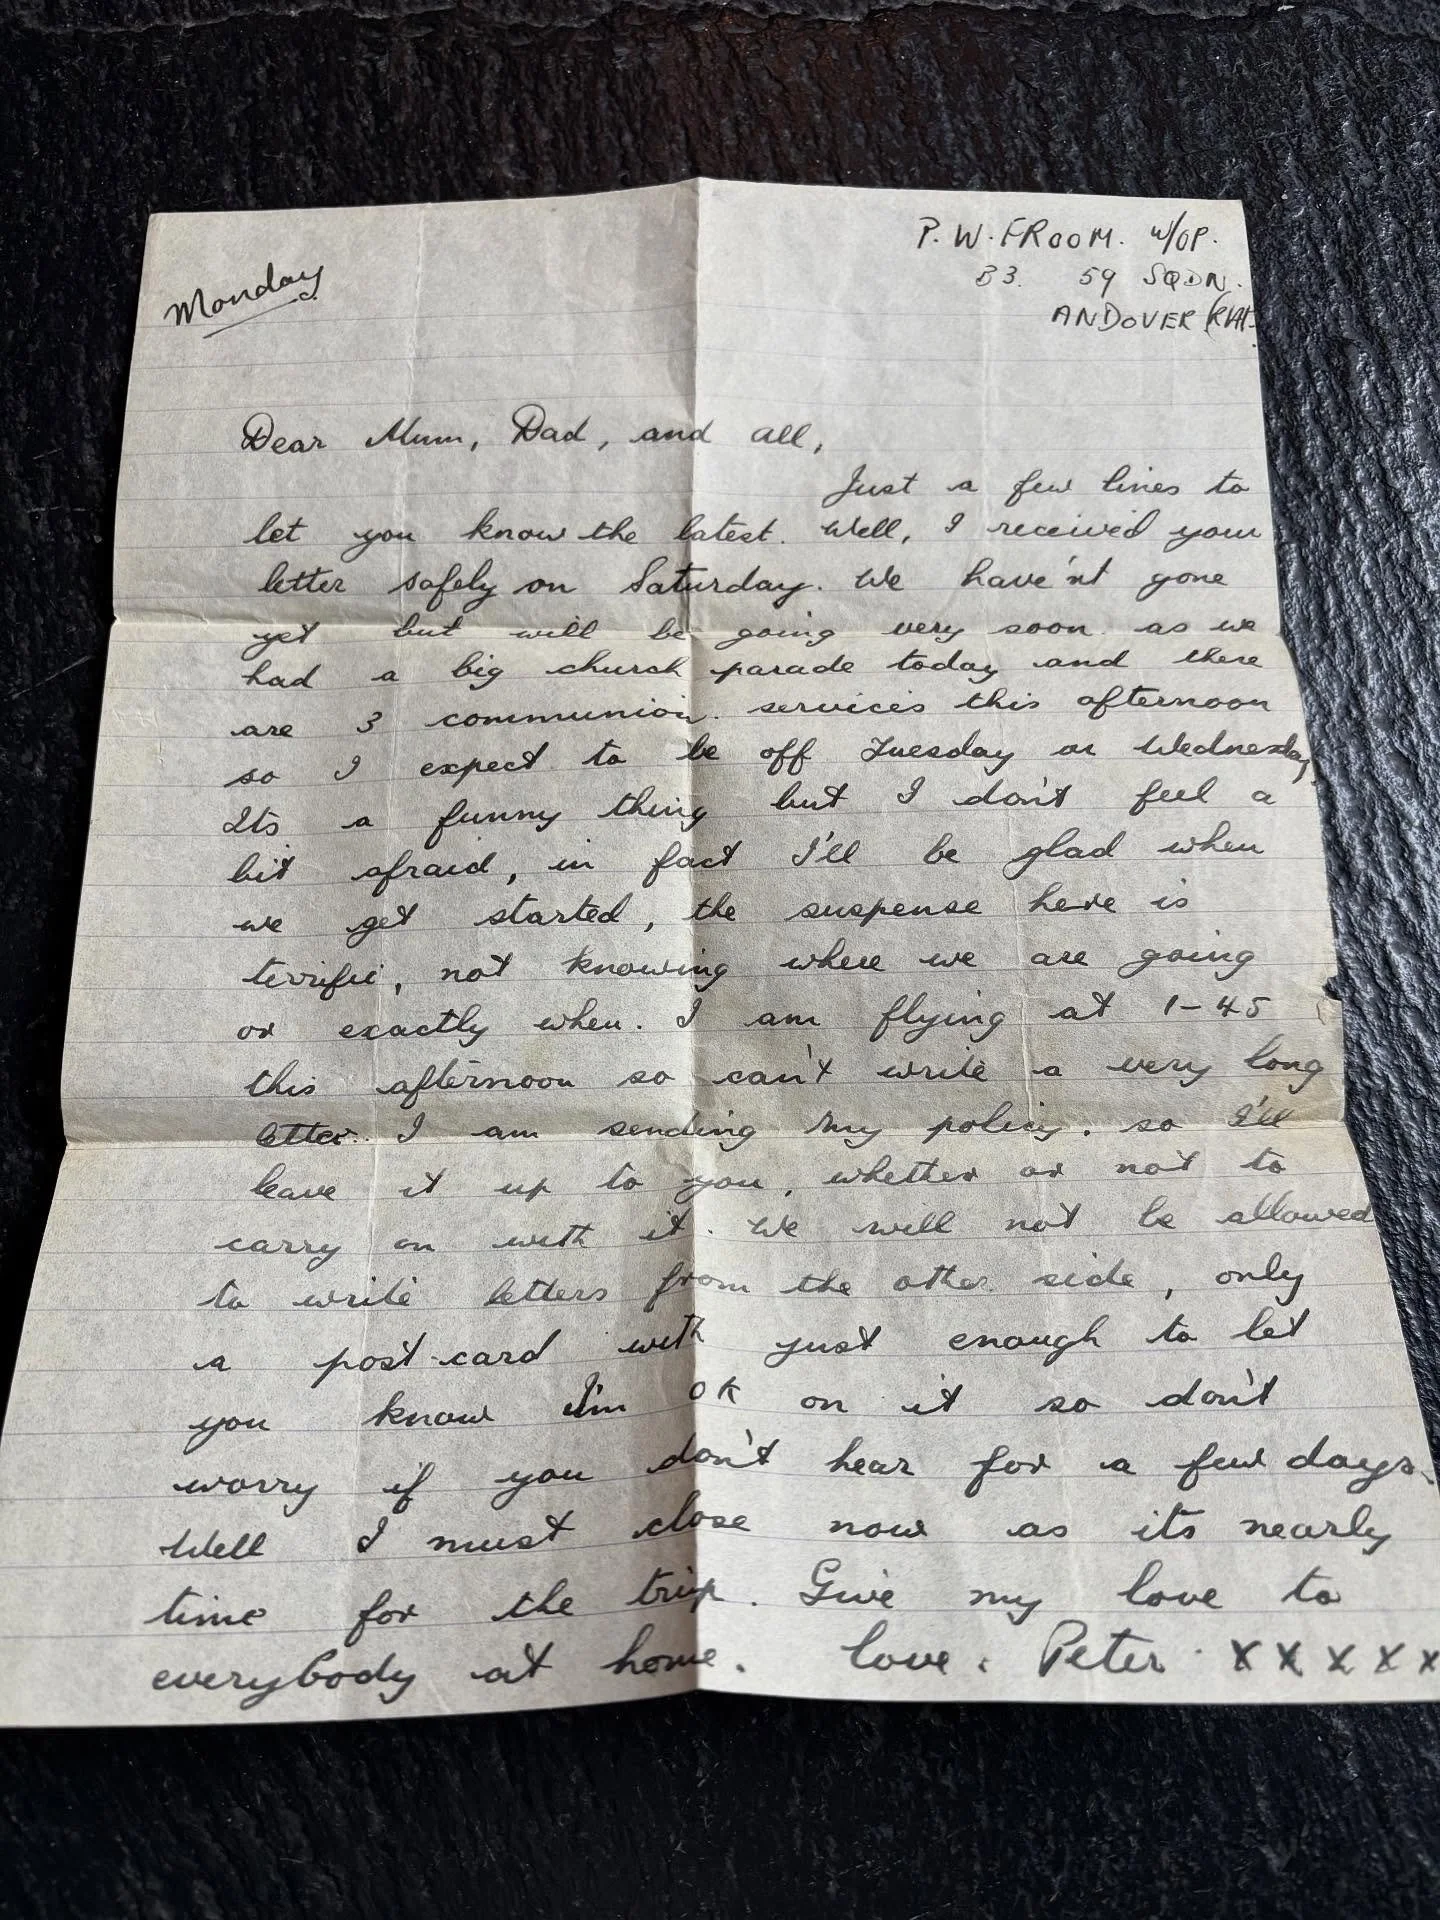 P. W. FROOM. W/OP.
B3. 59 SQDN.
ANDOVER (RAF.
Monday
Dear Mum, Dad, and all,
Just a few lines to
let you know the latest. Well, I received your
letter safely on Saturday. We have'nt gone
yet but will be going very soon as we
had a big church parade today and there
are 3 communion services this afternoon
so I expect to be off Tuesday or Wednesday.
Its a funny thing but I don't feel a
bit afraid, in fact I'll be glad when
we get started, the suspense here is
terrific, not knowing where we are going
or exactly when. I am flying at 1-45
this afternoon so can't write a very long
letter. I am sending my policy. so I'll
leave it up to you, whether or not to
carry on with it. We will not be allowed
to write letters from the other side, only
a post-card with just enough to let
you know I'm OK on it so don't
worry if you don't hear for a few days.
Well I must close now as its nearly
time for the trip. Give my love to
everybody at home. love. Peter. x x x x x